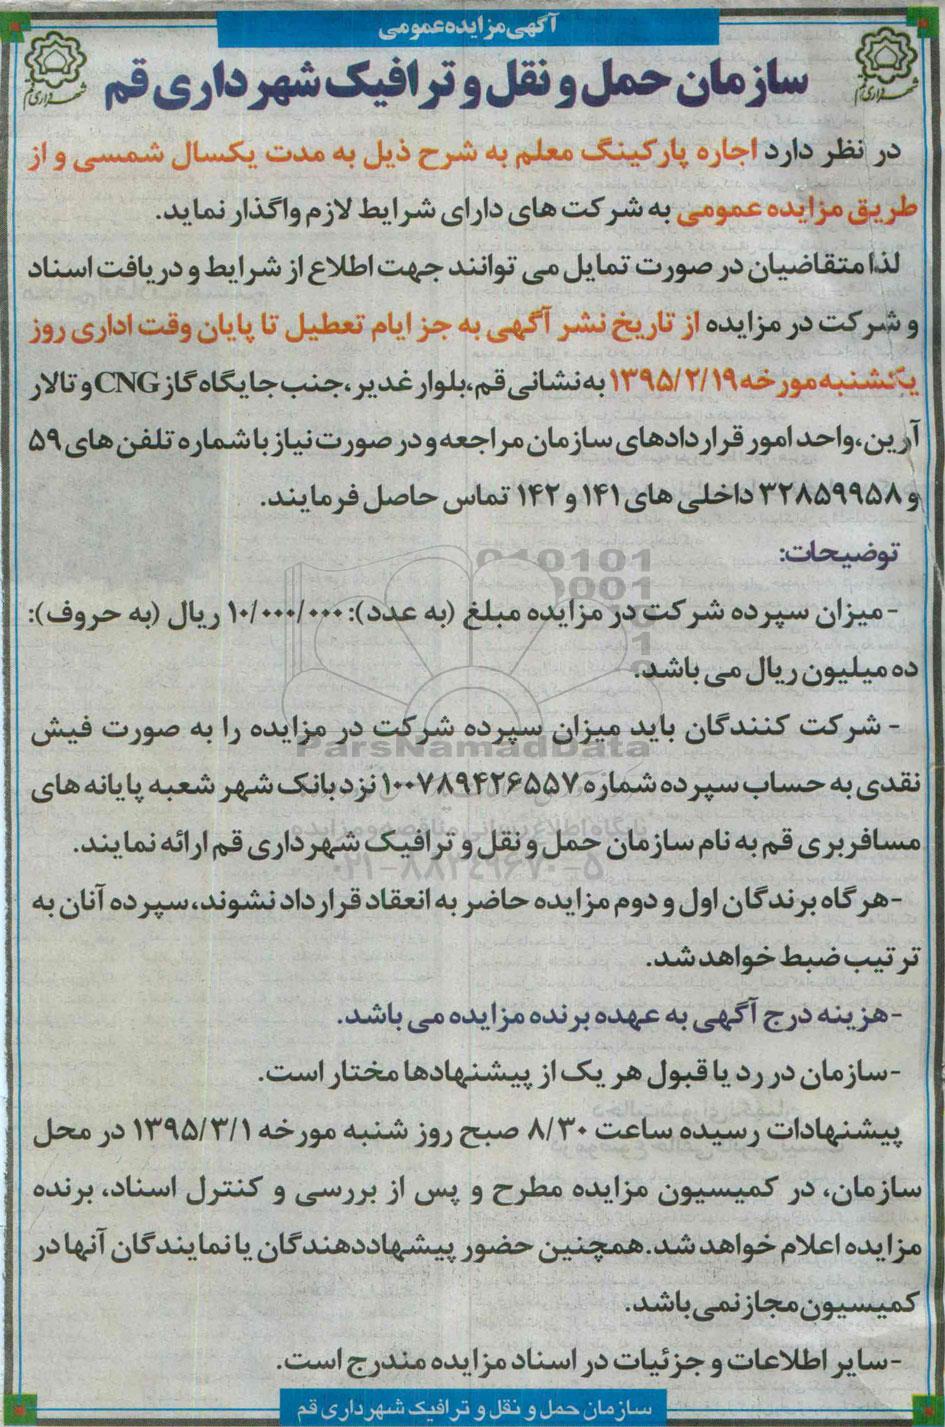 آگهی مزایده عمومی
شهرداری قم
شهرداری قم
سازمان حمل و نقل و ترافیک شهرداری قم
در نظر دارد اجاره پارکینگ معلم به شرح ذیل به مدت یکسال شمسی و از
طریق مزایده عمومی به شرکت های دارای شرایط لازم واگذار نماید.
لذا متقاضیان در صورت تمایل می توانند جهت اطلاع از شرایط و دریافت اسناد
و شرکت در مزایده از تاریخ نشر آگهی به جز ایام تعطیل تا پایان وقت اداری روز
یکشنبه مورخه ۱۳۹۵/۲/۱۹ به نشانی قم، بلوار غدیر، جنب جایگاه گاز CNG و تالار
آرین، واحد امور قراردادهای سازمان مراجعه و در صورت نیاز با شماره تلفن های ۵۹
و ۳۲۸۵۹۹۵۸ داخلی های ۱۴۱ و ۱۴۲ تماس حاصل فرمایند.
توضیحات:
- میزان سپرده شرکت در مزایده مبلغ (به عدد): ۱۰/۰۰۰/۰۰۰ ریال (به حروف):
ده میلیون ریال می باشد.
- شرکت کنندگان باید میزان سپرده شرکت در مزایده را به صورت فیش
ParsNamadData
نقدی به حساب سپرده شماره ۱۰۰۷۸۹۴۲۶۵۵۷ نزد بانک شهر شعبه پایانه های
مسافربری قم به نام سازمان حمل و نقل و ترافیک شهرداری قم ارائه نمایند.
۰۲۱-۸۸۳۴۹۶۷۰-۵
- هرگاه برندگان اول و دوم مزایده حاضر به انعقاد قرارداد نشوند، سپرده آنان به
ترتیب ضبط خواهد شد.
- هزینه درج آگهی به عهده برنده مزایده می باشد.
- سازمان در رد یا قبول هر یک از پیشنهادها مختار است.
پیشنهادات رسیده ساعت ۸/۳۰ صبح روز شنبه مورخه ۱۳۹۵/۳/۱ در محل
سازمان، در کمیسیون مزایده مطرح و پس از بررسی و کنترل اسناد، برنده
مزایده اعلام خواهد شد. همچنین حضور پیشنهاددهندگان یا نمایندگان آنها در
کمیسیون مجاز نمی باشد.
- سایر اطلاعات و جزئیات در اسناد مزایده مندرج است.
سازمان حمل و نقل و ترافیک شهرداری قم